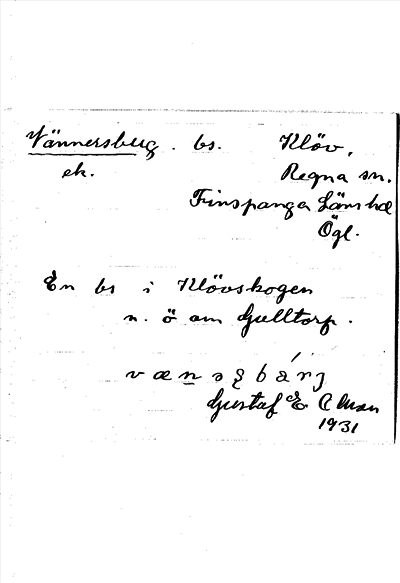 Vännersberg. bs. Klöv,
ek. Regna sn.
Finspanga Läns hd
Ögl.
En bs i Klövskogen
n. ö om Gulltorp.
Gustaf E Alman
1931